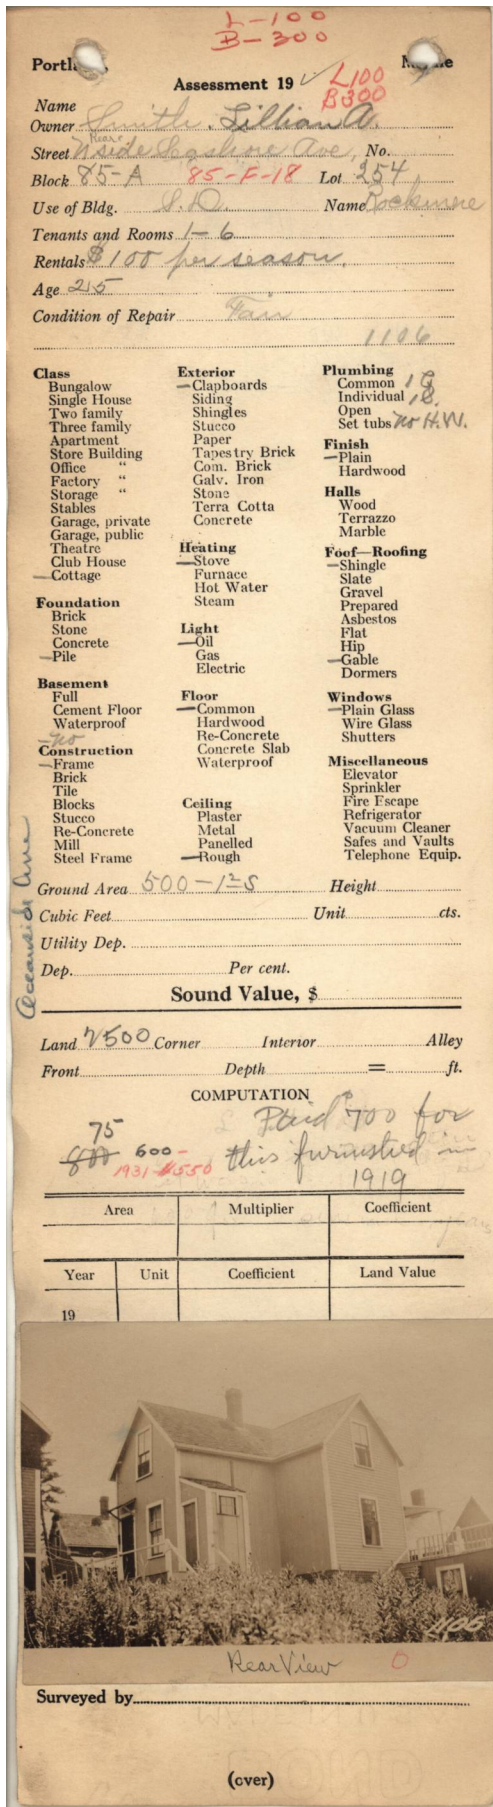 L-100
B-300
Portl Me
Assessment 19 ✓ L100
B300
Name
Owner Smith, Lillian A.
Rear
Street N side Seashore Ave, No.
Block 85-A 85-F-18 Lot 254
Use of Bldg. S.D. Name Rockmere
Tenants and Rooms 1-6
Rentals $100 per season.
Age 25
Condition of Repair Fair
1106
Class
Bungalow
Single House
Two family
Three family
Apartment
Store Building
Office "
Factory "
Storage "
Stables
Garage, private
Garage, public
Theatre
Club House
—Cottage
Foundation
Brick
Stone
Concrete
—Pile
Basement
Full
Cement Floor
Waterproof
—no
Construction
—Frame
Brick
Tile
Blocks
Stucco
Re-Concrete
Mill
Steel Frame
Exterior
—Clapboards
Siding
Shingles
Stucco
Paper
Tapestry Brick
Com. Brick
Galv. Iron
Stone
Terra Cotta
Concrete
Heating
—Stove
Furnace
Hot Water
Steam
Light
—Oil
Gas
Electric
Floor
—Common
Hardwood
Re-Concrete
Concrete Slab
Waterproof
Ceiling
Plaster
Metal
Panelled
—Rough
Plumbing
Common 1 C
Individual 1 S.
Open
Set tubs no H.W.
Finish
—Plain
Hardwood
Halls
Wood
Terrazzo
Marble
Foof—Roofing
—Shingle
Slate
Gravel
Prepared
Asbestos
Flat
Hip
—Gable
Dormers
Windows
—Plain Glass
Wire Glass
Shutters
Miscellaneous
Elevator
Sprinkler
Fire Escape
Refrigerator
Vacuum Cleaner
Safes and Vaults
Telephone Equip.
Oceanside Ave
Ground Area 500-1½S Height
Cubic Feet Unit cts.
Utility Dep.
Dep. Per cent.
Sound Value, $
Land 2500 Corner Interior Alley
Front Depth = ft.
COMPUTATION
Paid $700 for
this furnished in
1919
75
800 600-
1931-$550
Area Multiplier Coefficient
Year Unit Coefficient Land Value
19
400
Rear View 0
Surveyed by
(over)